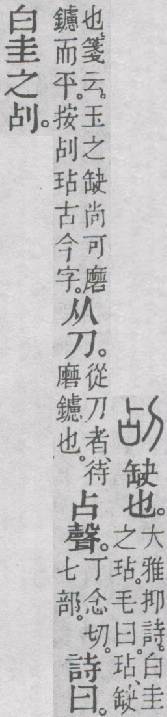 㓠 缺也。大雅抑詩。白圭之玷。毛曰。玷、缺
也。箋云。玉之缺尚可磨鑢而平。按㓠玷古今字。从刀。從刀者、待磨鑢也。占聲。丁念切。七部。詩曰。
白圭之㓠。